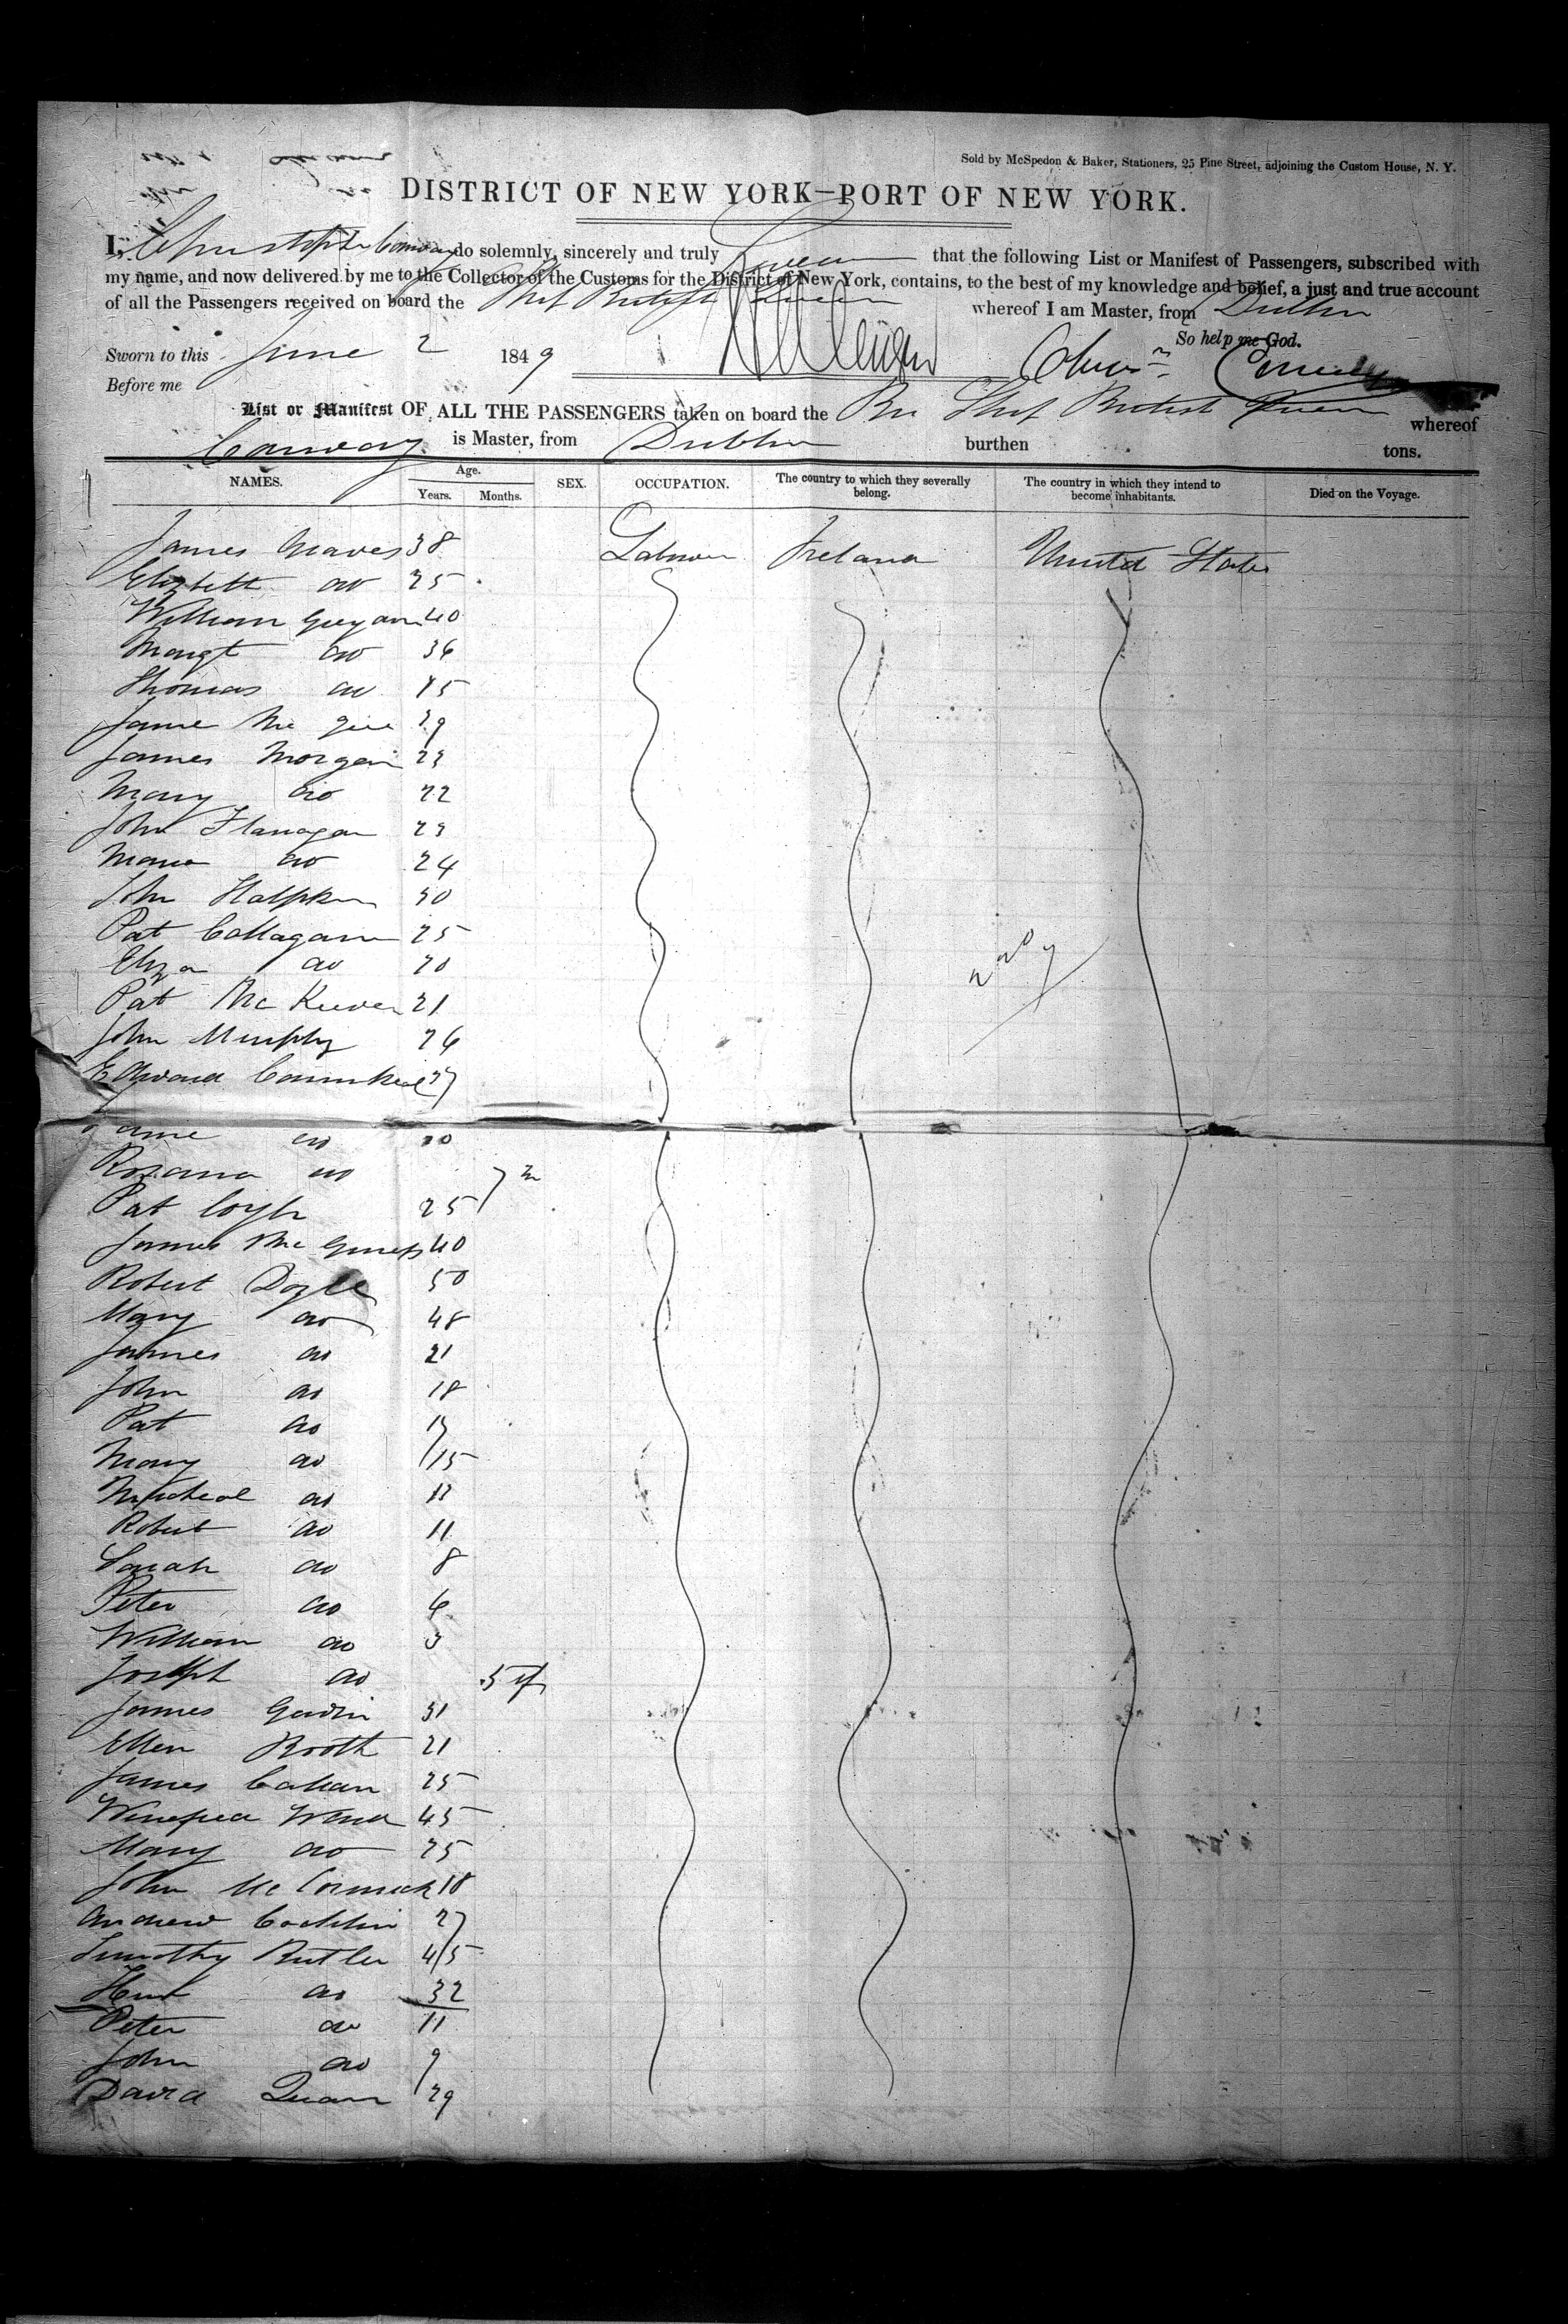 Sold by McSpedon & Baker, Stationers, 25 Pine Street, adjoining the Custom House, N. Y.
DISTRICT OF NEW YORK—PORT OF NEW YORK.
I, Christopher Conway do solemnly, sincerely and truly Swear that the following List or Manifest of Passengers, subscribed with
my name, and now delivered by me to the Collector of the Customs for the District of New York, contains, to the best of my knowledge and belief, a just and true account
of all the Passengers received on board the Ship British Queen whereof I am Master, from Dublin
So help me God.
Sworn to this June 2 1849
Before me
List or Manifest OF ALL THE PASSENGERS taken on board the Br Ship British Queen whereof
Conway is Master, from Dublin burthen tons.
NAMES. Age. Years. Months. SEX. OCCUPATION. The country to which they severally belong. The country in which they intend to become inhabitants. Died on the Voyage.
James Graves 38 Labourer Ireland United States
Elizbeth do 35
William 40
Margt do 36
Thomas do 15
Jame Mc
James Morgan 23
Mary do 22
John Flanagan 23
Maria do 24
John 30
Pat Collagan 25
Eliza do 20
Pat Mc Keever 21
John Murphy 26
Edward 27
Jame do
Rosanna do 7 m
Pat 25
James Mc Guness 40
Robert Doyle 50
Mary do 48
James do 21
John do 18
Pat do 17
Mary do 15
Micheal do 13
Robert do 11
Sarah do 8
Peter do 6
William do 3
Joseph do
James 31
Ellen Booth 21
James Callan 25
Winefred Ward 45
Mary do 25
John Mc Cormick 18
Andrew 27
Timothy Butler 45
do 32
Peter do 11
John do 9
David Quan 29